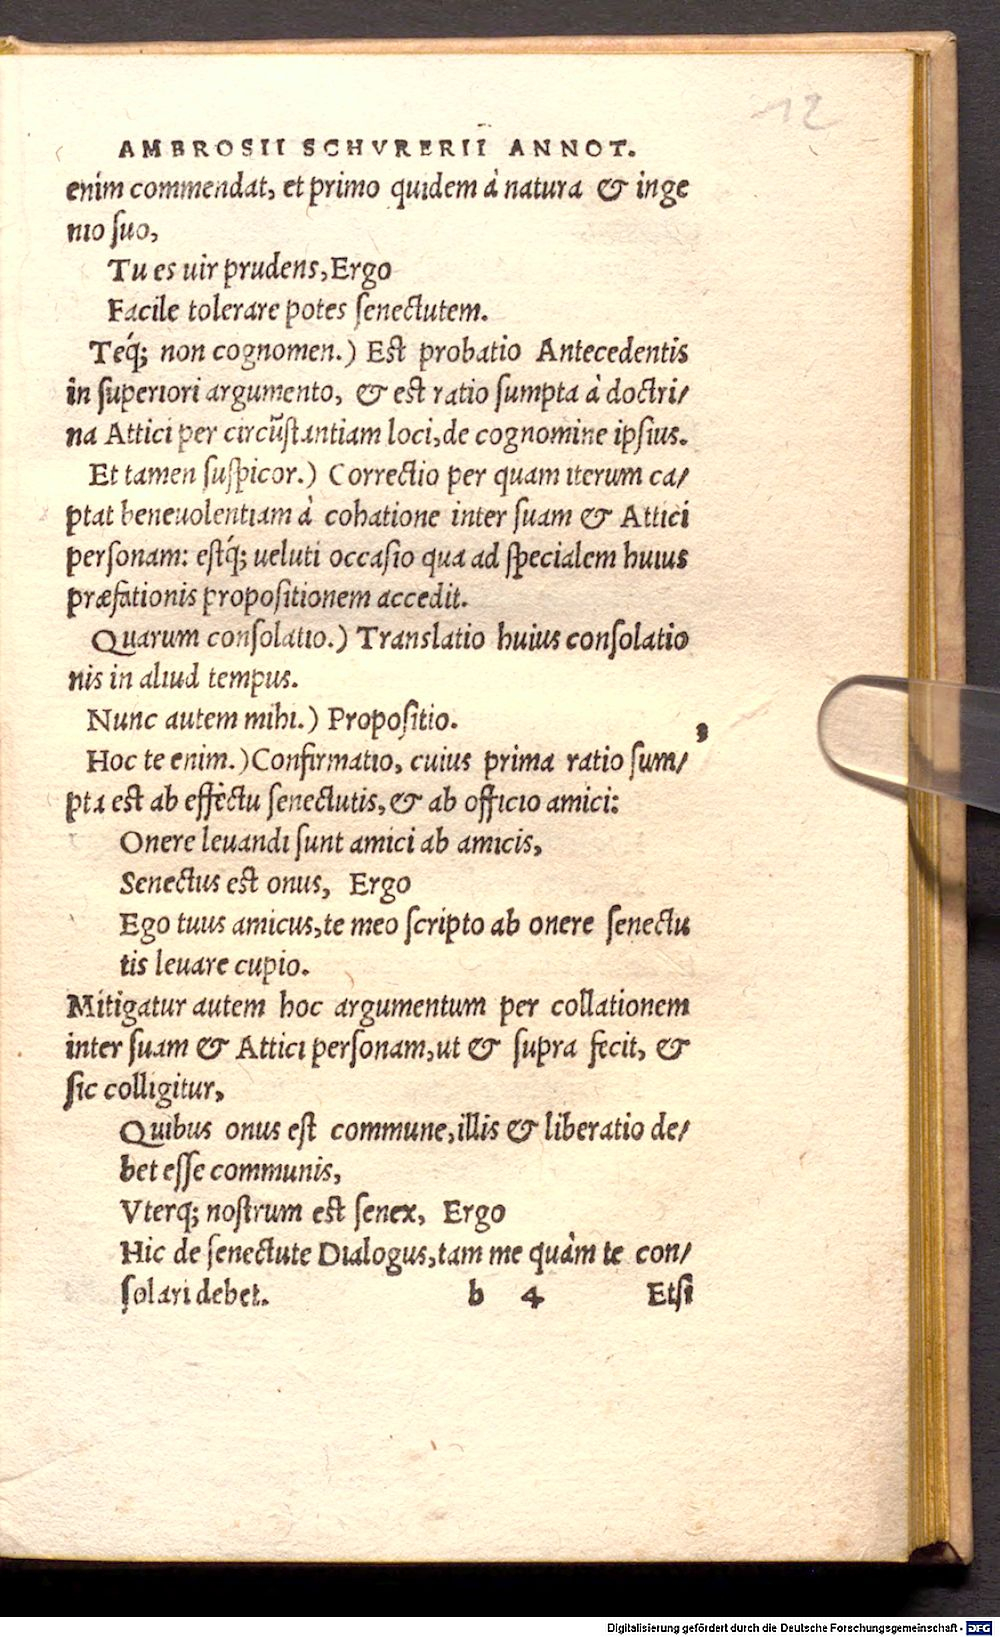 12
AMBROSII SCHVRERII ANNOT.
enim commendat, et primo quidem à natura & inge
nio suo,
Tu es uir prudens, Ergo
Facile tolerare potes senectutem.
Teq́; non cognomen.) Est probatio Antecedentis
in superiori argumento, & est ratio sumpta à doctri/
na Attici per circũstantiam loci, de cognomine ipsius.
Et tamen suspicor.) Correctio per quam iterum ca/
ptat beneuolentiam à cohatione inter suam & Attici
personam: estq́; ueluti occasio qua ad specialem huius
præfationis propositionem accedit.
Quarum consolatio.) Translatio huius consolatio
nis in aliud tempus.
Nunc autem mihi.) Propositio.
Hoc te enim.) Confirmatio, cuius prima ratio sum/
pta est ab effectu senectutis, & ab officio amici:
Onere leuandi sunt amici ab amicis,
Senectus est onus, Ergo
Ego tuus amicus, te meo scripto ab onere senectu
tis leuare cupio.
Mitigatur autem hoc argumentum per collationem
inter suam & Attici personam, ut & supra fecit, &
sic colligitur,
Quibus onus est commune, illis & liberatio de/
bet esse communis,
Vterq; nostrum est senex, Ergo
Hic de senectute Dialogus, tam me quàm te con/
solari debet.
b 4 Etsi
Digitalisierung gefördert durch die Deutsche Forschungsgemeinschaft - DFG